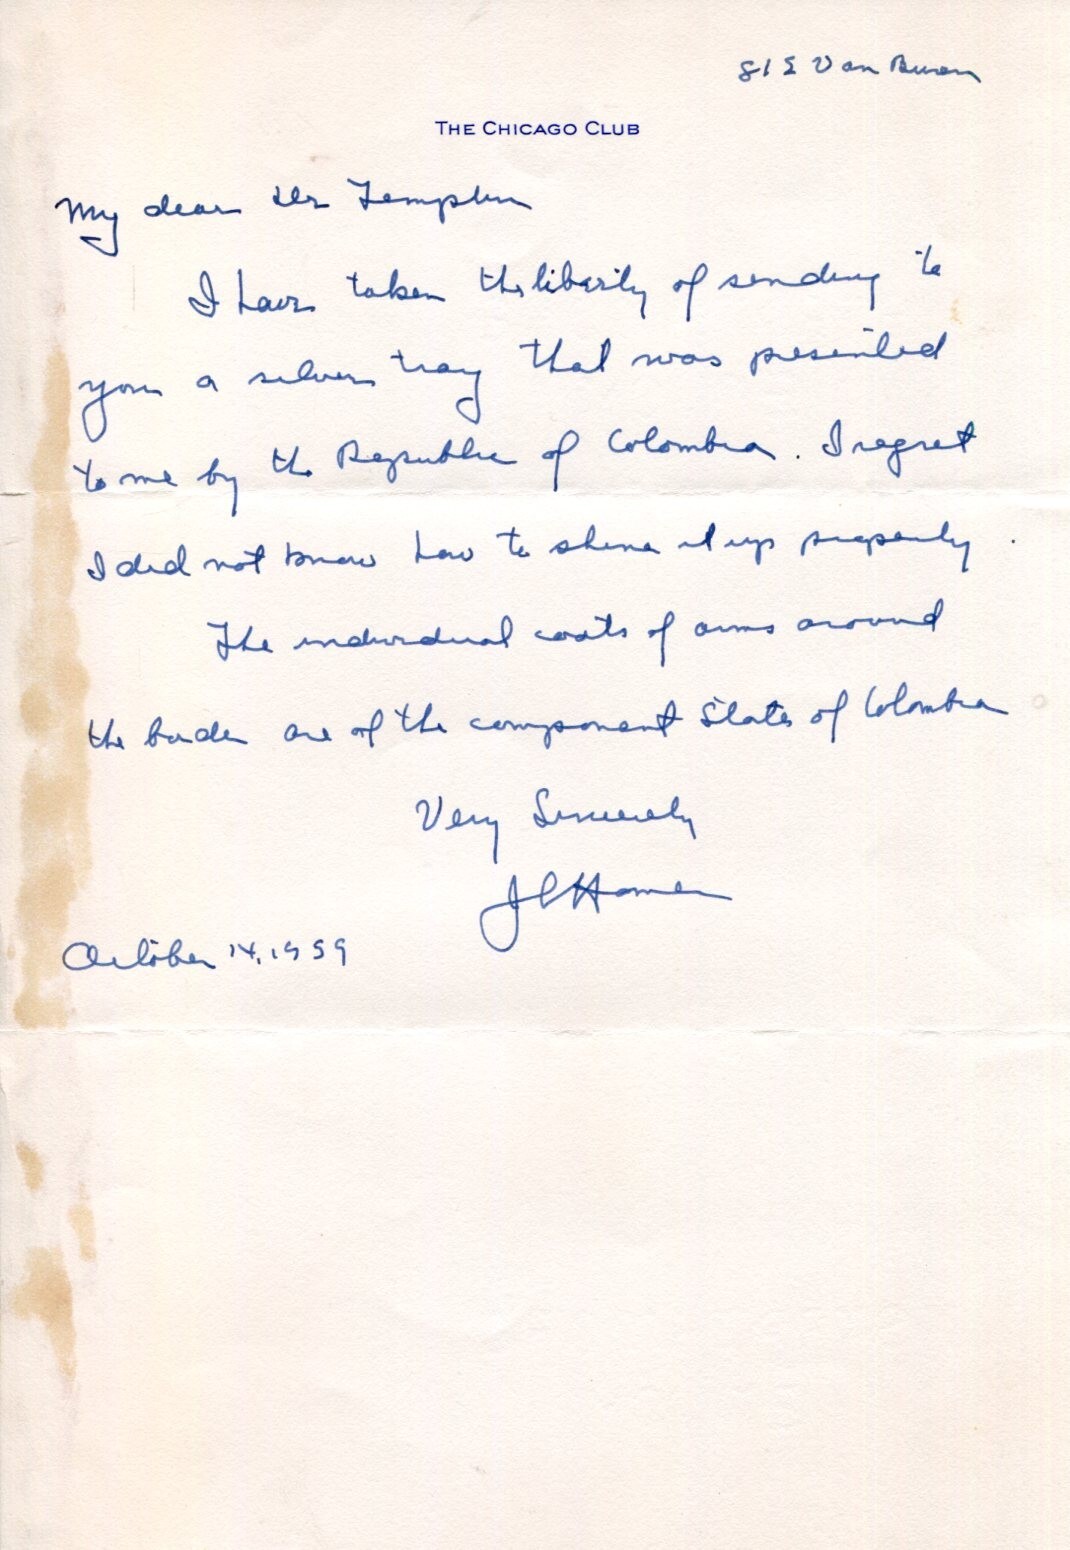 81 E Van Buren
THE CHICAGO CLUB
My dear Mr Templin
I have taken the liberty of sending to
you a silver tray that was presented
to me by the Republic of Colombia. I regret
I did not know how to shine it up properly.
The individual coats of arms around
the border are of the component States of Colombia
Very Sincerely
October 14, 1959